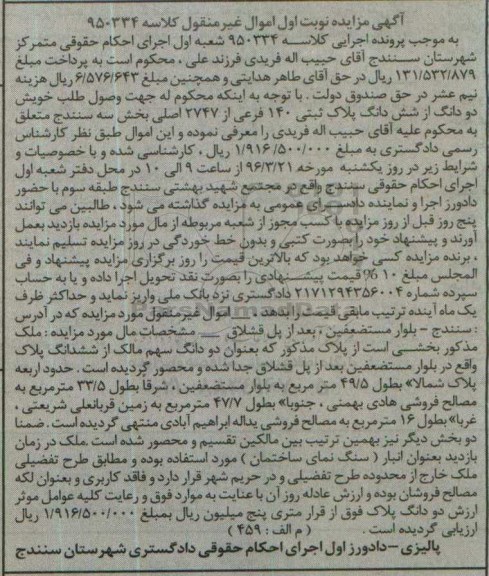 آگهی مزایده نوبت اول اموال غیرمنقول کلاسه ۹۵۰۳۳۴
به موجب پرونده اجرایی کلاسه ۹۵۰۳۳۴ شعبه اول اجرای احکام حقوقی متمرکز
شهرستان سنندج آقای حبیب اله فریدی فرزند علی ، محکوم است به پرداخت مبلغ
۱۳۱/۵۳۲/۸۷۹ ریال در حق آقای طاهر هدایتی و همچنین مبلغ ۶/۵۷۶/۶۴۳ ریال هزینه
نیم عشر در حق صندوق دولت . با توجه به اینکه محکوم له جهت وصول طلب خویش
دو دانگ از شش دانگ پلاک ثبتی ۱۴۰ فرعی از ۲۷۴۷ اصلی بخش سه سنندج متعلق
به محکوم علیه آقای حبیب اله فریدی را معرفی نموده و این اموال طبق نظر کارشناس
رسمی دادگستری به مبلغ ۱/۹۱۶/۵۰۰/۰۰۰ ریال ، کارشناسی شده و با خصوصیات و
شرایط زیر در روز یکشنبه مورخه ۹۶/۳/۲۱ از ساعت ۹ الی ۱۰ در محل دفتر شعبه اول
اجرای احکام حقوقی سنندج واقع در مجتمع شهید بهشتی سنندج طبقه سوم با حضور
دادورز اجرا و نماینده دادسرای عمومی به مزایده گذاشته می شود ، طالبین می توانند
پنج روز قبل از روز مزایده با کسب مجوز از شعبه مربوطه از مال مورد مزایده بازدید بعمل
آورند و پیشنهاد خود را بصورت کتبی و بدون خط خوردگی در روز مزایده تسلیم نمایند
، برنده مزایده کسی خواهد بود که بالاترین قیمت را روز برگزاری مزایده پیشنهاد و فی
المجلس مبلغ ۱۰ % قیمت پیشنهادی را بصورت نقد تحویل اجرا داده و یا به حساب
سپرده شماره ۲۱۷۱۲۹۴۳۵۶۰۰۴ دادگستری نزد بانک ملی واریز نماید و حداکثر ظرف
یک ماه آینده ترتیب مابقی قیمت را بدهد . — اموال غیرمنقول مورد مزایده که در آدرس
: سنندج - بلوار مستضعفین ، بعد از پل قشلاق — مشخصات مال مورد مزایده : ملک
مذکور بخشی است از پلاک مذکور که بعنوان دو دانگ سهم مالک از ششدانگ پلاک
واقع در بلوار مستضعفین بعد از پل قشلاق جدا شده و محصور گردیده است . حدود اربعه
پلاک شمالا" بطول ۴۹/۵ متر مربع به بلوار مستضعفین ، شرقا بطول ۳۳/۵ مترمربع به
مصالح فروشی هادی بهمنی ، جنوبا" بطول ۴۷/۷ مترمربع به زمین قربانعلی شریعتی ،
غربا" بطول ۱۶ مترمربع به مصالح فروشی یداله ابراهیم آبادی منتهی گردیده است . ضمنا
دو بخش دیگر نیز بهمین ترتیب بین مالکین تقسیم و محصور شده است .ملک در زمان
بازدید بعنوان انبار ( سنگ نمای ساختمان ) مورد استفاده بوده و مطابق طرح تفضیلی
ملک خارج از محدوده طرح تفضیلی و در حریم شهر قرار دارد و فاقد کاربری و بعنوان لکه
مصالح فروشان بوده و ارزش عادله روز آن با عنایت به موارد فوق و رعایت کلیه عوامل موثر
ارزش دو دانگ پلاک فوق از قرار متری پنج میلیون ریال بمبلغ ۱/۹۱۶/۵۰۰/۰۰۰ ریال
ارزیابی گردیده است . ( م الف : ۴۵۹ )
پالیزی - دادورز اول اجرای احکام حقوقی دادگستری شهرستان سنندج